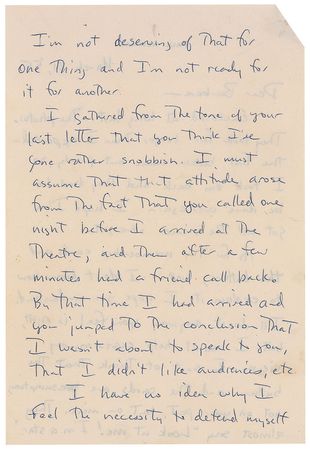 I'm not deserving of that for
one thing and I'm not ready for
it for another.
I gathered from the tone of your
last letter that you think I've
gone rather snobbish. I must
assume that that attitude arose
from the fact that you called one
night before I arrived at the
theatre, and then after a few
minutes had a friend call back.
By that time I had arrived and
you jumped to the conclusion that
I wasn't about to speak to you,
that I didn't like audiences, etc
I have no idea why I
feel the necessity to defend myself